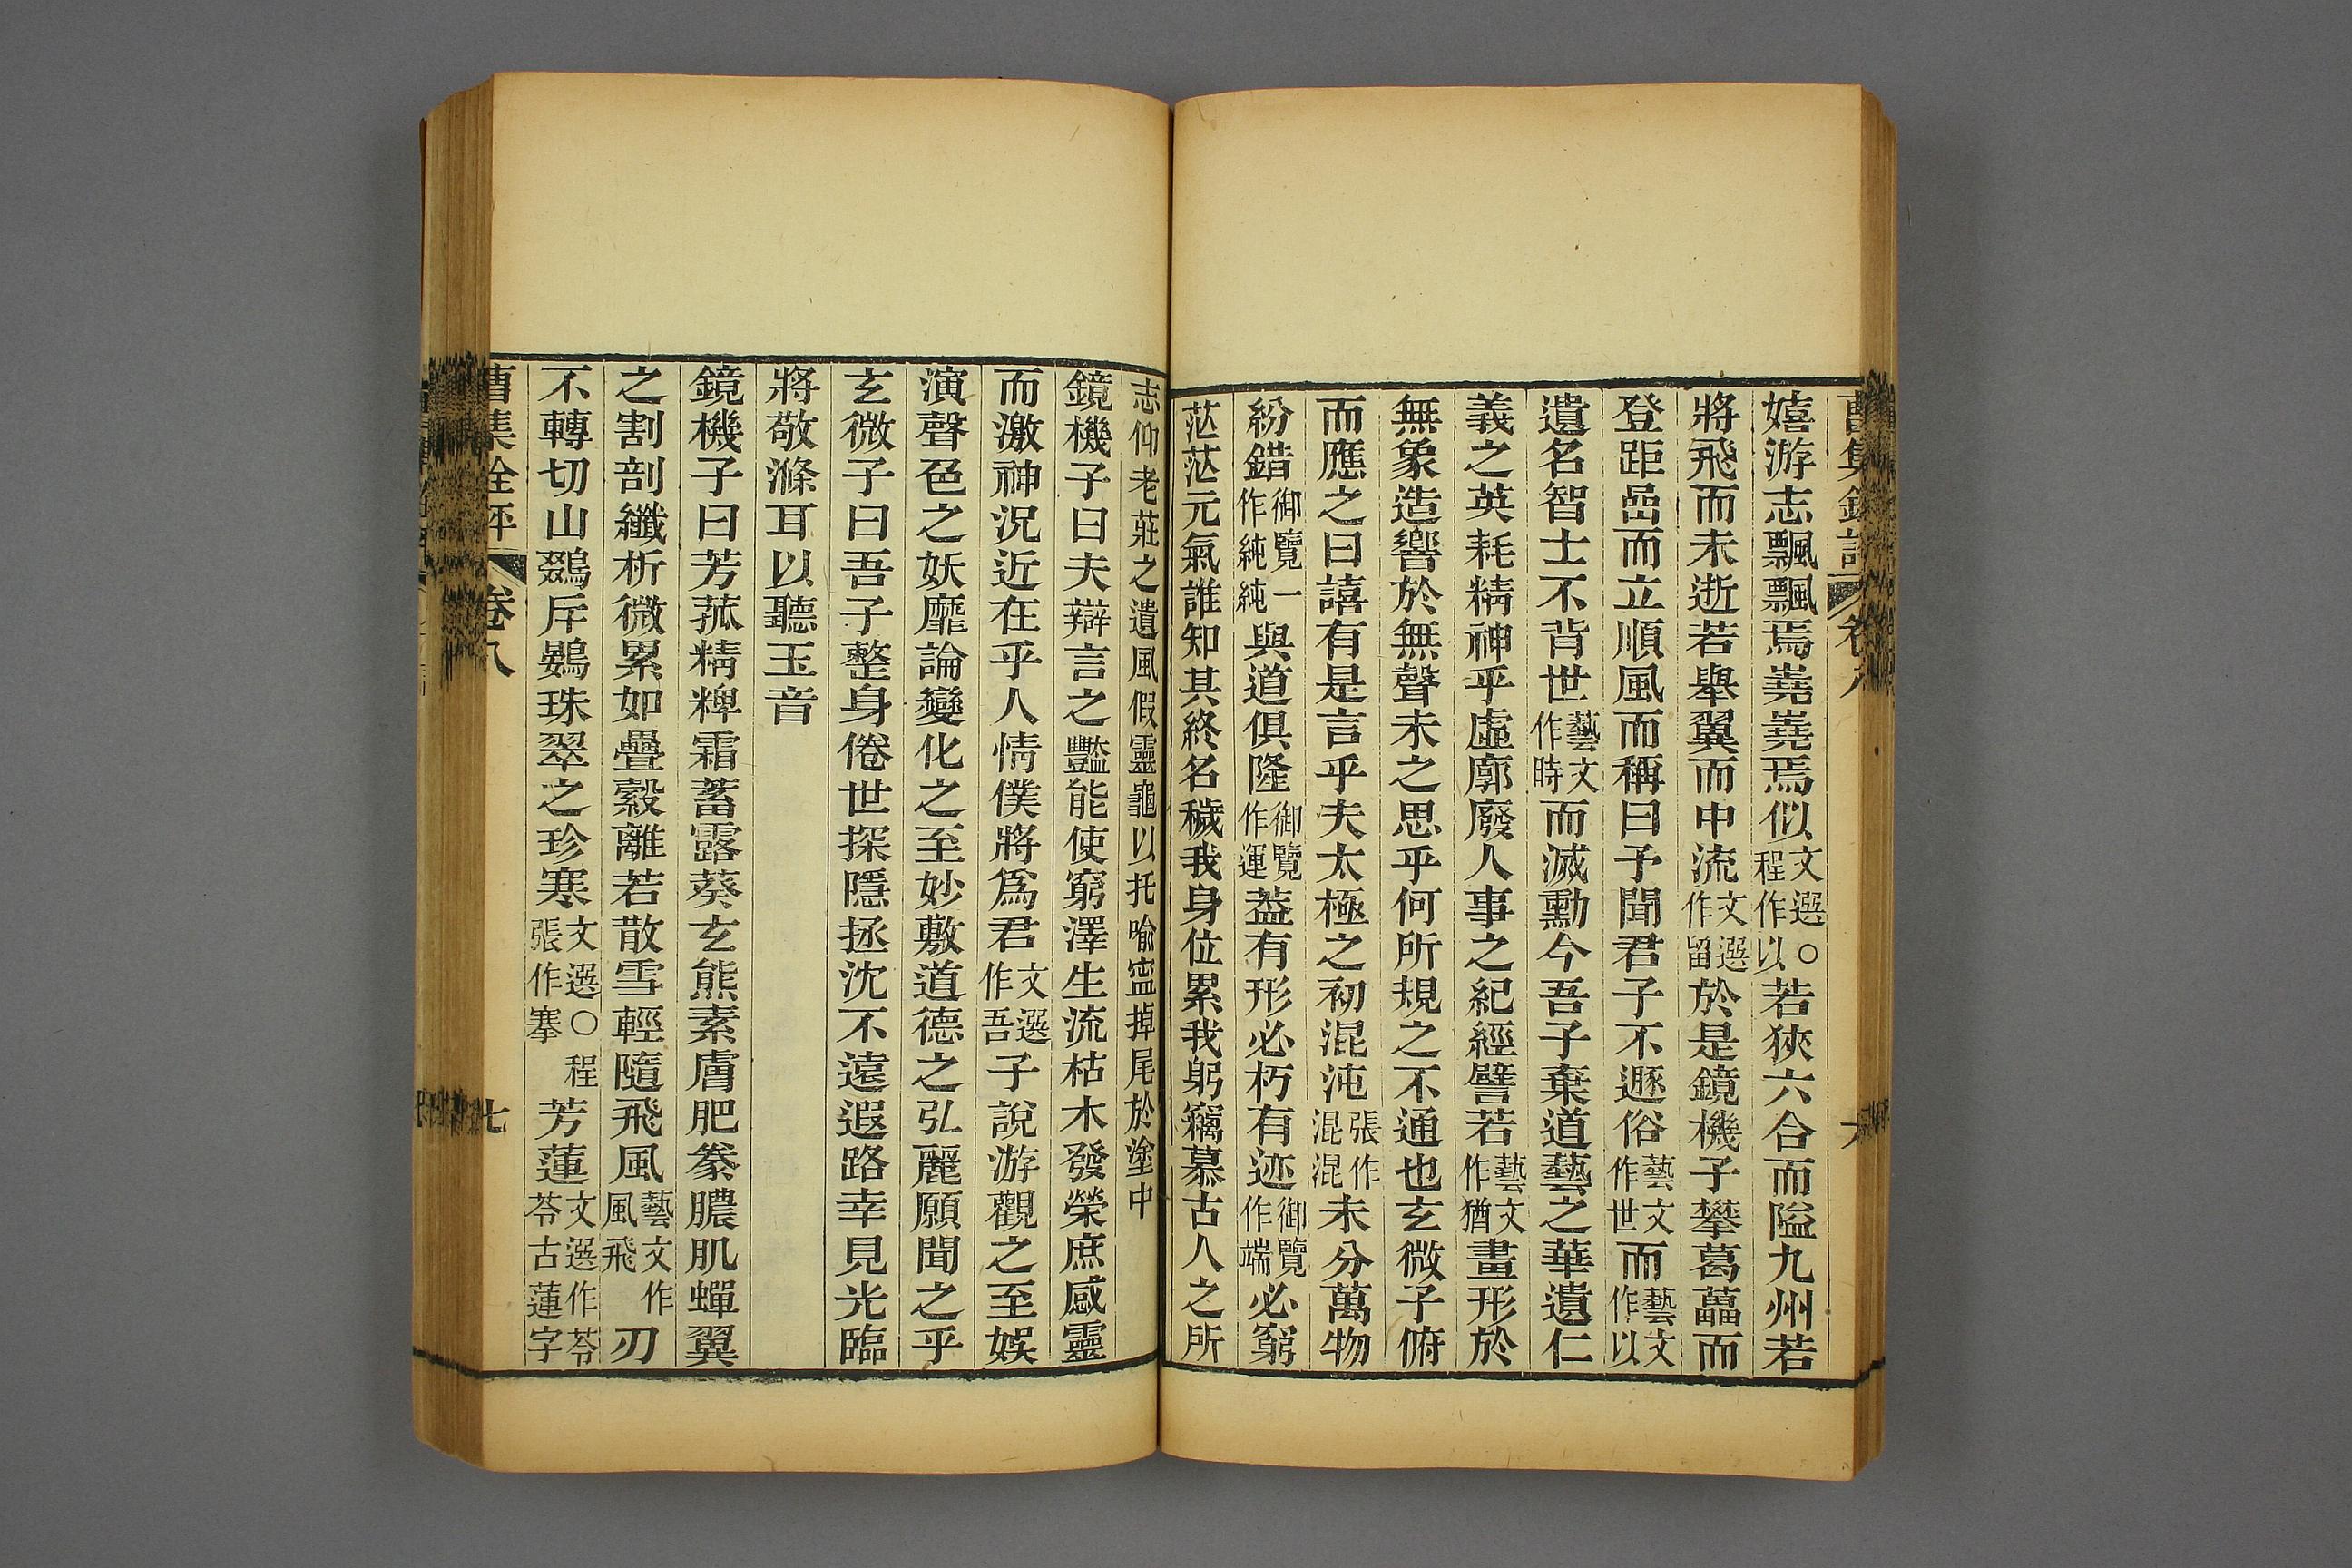 嬉游志飄飄焉嶤嶤焉似文選○程作以若狹六合而隘九州若
將飛而未逝若舉翼而中流文選作留於是鏡機子攀葛藟而
登距嵒而立順風而稱曰予聞君子不遯俗藝文作世而藝文作以
遺名智士不背世藝文作時而滅勳今吾子棄道藝之華遺仁
義之英耗精神乎虛廓廢人事之紀經譬若藝文作猶畫形於
無象造響於無聲未之思乎何所規之不通也玄微子俯
而應之曰譆有是言乎夫太極之初混沌張作混混未分萬物
紛錯御覽一作純純與道俱隆御覽作運葢有形必朽有迹御覽作端必窮
茫茫元氣誰知其終名穢我身位累我躬竊慕古人之所
志仰老莊之遺風假靈龜以托喻寍掉尾於塗中
鏡機子曰夫辯言之豔能使窮澤生流枯木發榮庶感靈
而激神況近在乎人情僕將爲君文選作吾子說游觀之至娛
演聲色之妖靡論變化之至妙敷道德之弘麗願聞之乎
玄微子曰吾子整身倦世探隱拯沈不遠遐路幸見光臨
將敬滌耳以聽玉音
鏡機子曰芳菰精粺霜蓄露葵玄熊素膚肥豢膿肌蟬翼
之割剖纖析微累如疊縠離若散雪輕隨飛風藝文作風飛刃
不轉切山鵽斥鷃珠翠之珍寒文選○程張作搴芳蓮文選作苓苓古蓮字
曹集全評 卷八 七